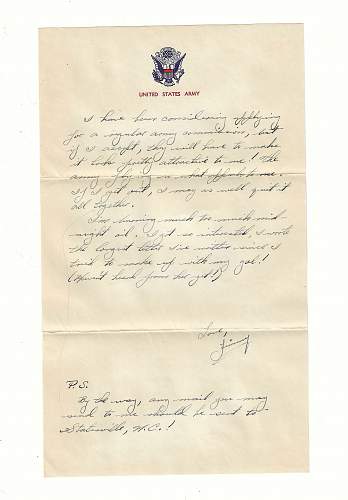 UNITED STATES ARMY
I have been considering applying
for a regular army commission, but
if I accept, they will have to make
it look pretty attractive to me! The
army flying is what appeals to me.
If I get out, I may as well quit it
all together.
I'm burning much too much mid-
night oil. I got so interested, I wrote
the longest letter I've written since I
tried to make up with my gal!
(Haven't heard from her yet!)
Love,
Jimmy
P.S.
By the way, any mail you may
send to me should be sent to
Statesville, N.C.!